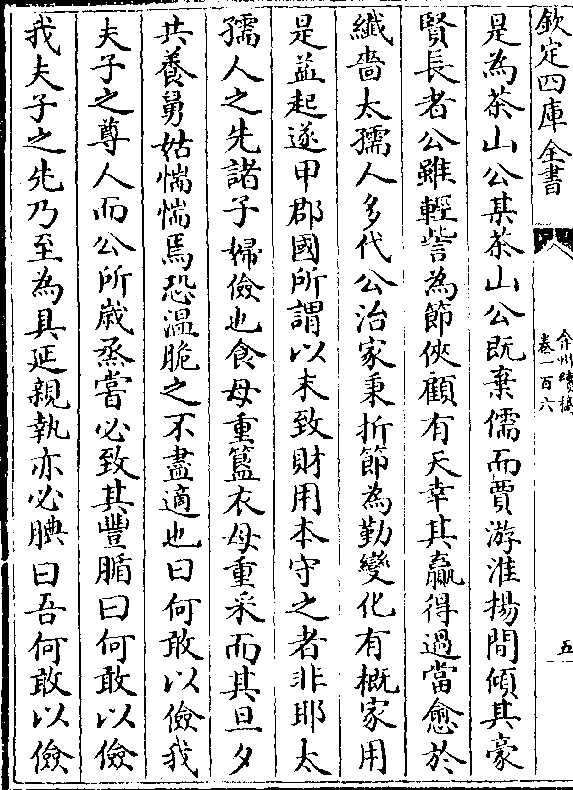 欽定四庫全書
弇州續稿
卷一百六
五
是為茶山公其茶山公既棄儒而賈游淮揚間傾其豪
賢長者公雖輕訾為節俠顧有天幸其贏得過當愈於
纖嗇太孺人多代公治家秉折節為勤變化有概家用
是益起遂甲郡國所謂以末致財用本守之者非耶太
孺人之先諸子婦儉也食毋重簋衣毋重采而其旦夕
共養舅姑惴惴焉恐溫脆之不盡適也曰何敢以儉我
夫子之尊人而公所歲烝嘗必致其豐腯曰何敢以儉
我夫子之先乃至為具延親執亦必腆曰吾何敢以儉